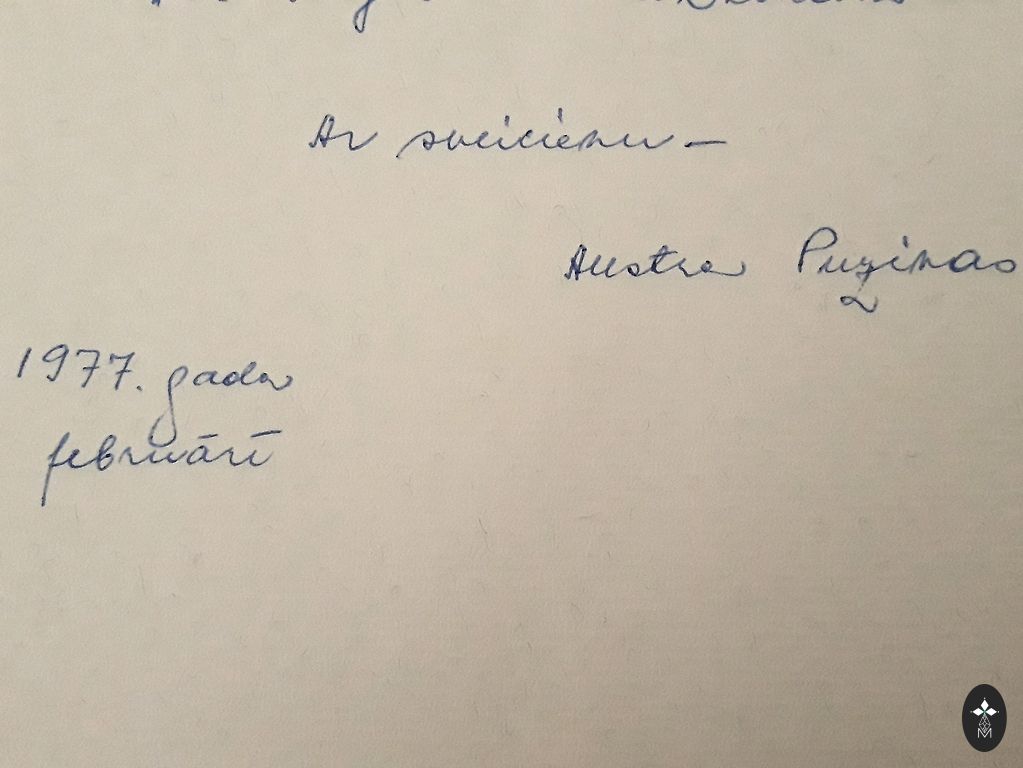 Ar sveicienu –
Austra Puzinas
1977. gada
februārī
M